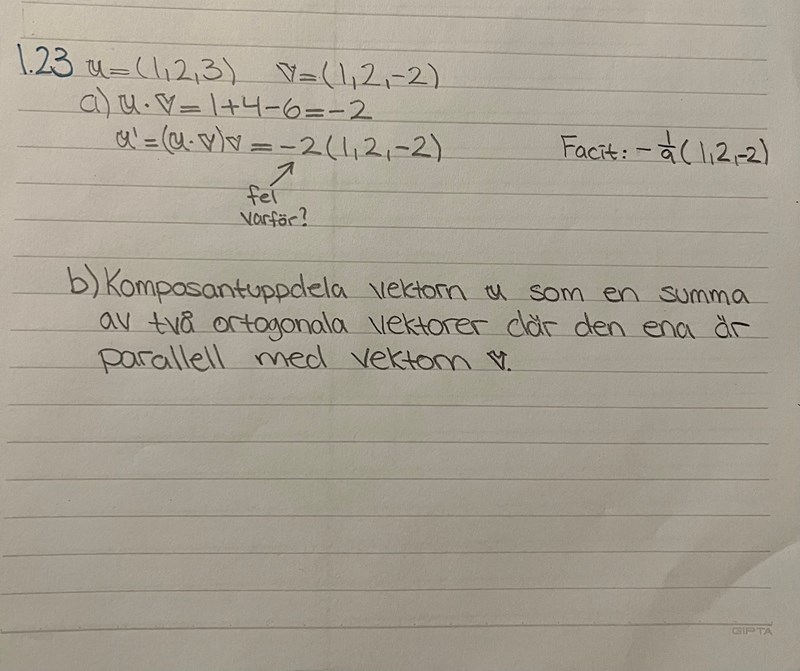 1.23 u=(1,2,3) v=(1,2,-2)
a) u·v=1+4-6=-2
u'=(u·v)v=-2(1,2,-2) Facit: -1/9(1,2,-2)
fel
varför?
b) Komposantuppdela vektorn u som en summa
av två ortogonala vektorer där den ena är
parallell med vektorn v.
GIPTA